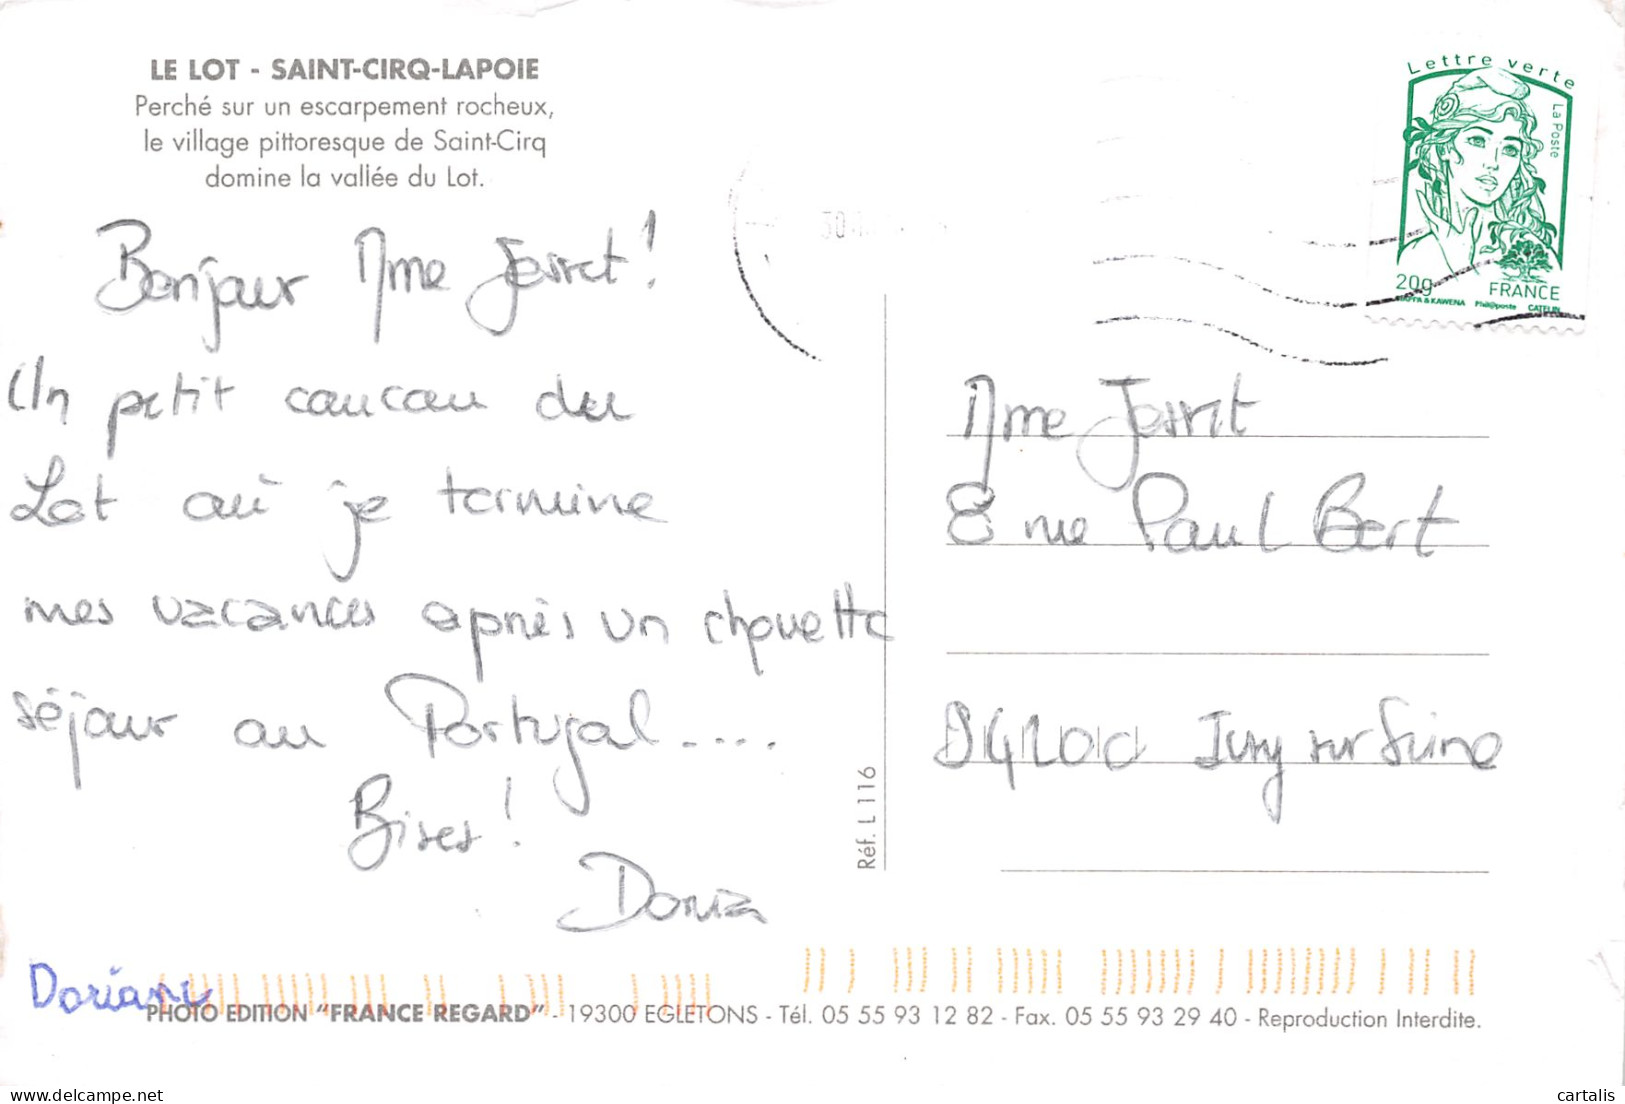 LE LOT - SAINT-CIRQ-LAPOIE
Perché sur un escarpement rocheux,
le village pittoresque de Saint-Cirq
domine la vallée du Lot.
Bonjour Mme Jerret !
Un petit coucou du
Lot où je termine
mes vacances après un chouette
séjour au Portugal.....
Bises !
Doriane
Lettre verte
La Poste
20g
FRANCE
CIAPPA & KAWENA Phil@poste CATELIN
30
Mme Jerret
8 rue Paul Bert
94200 Ivry sur Seine
Réf. L 116
PHOTO EDITION "FRANCE REGARD" - 19300 EGLETONS - Tél. 05 55 93 12 82 - Fax. 05 55 93 29 40 - Reproduction Interdite.
cartalis